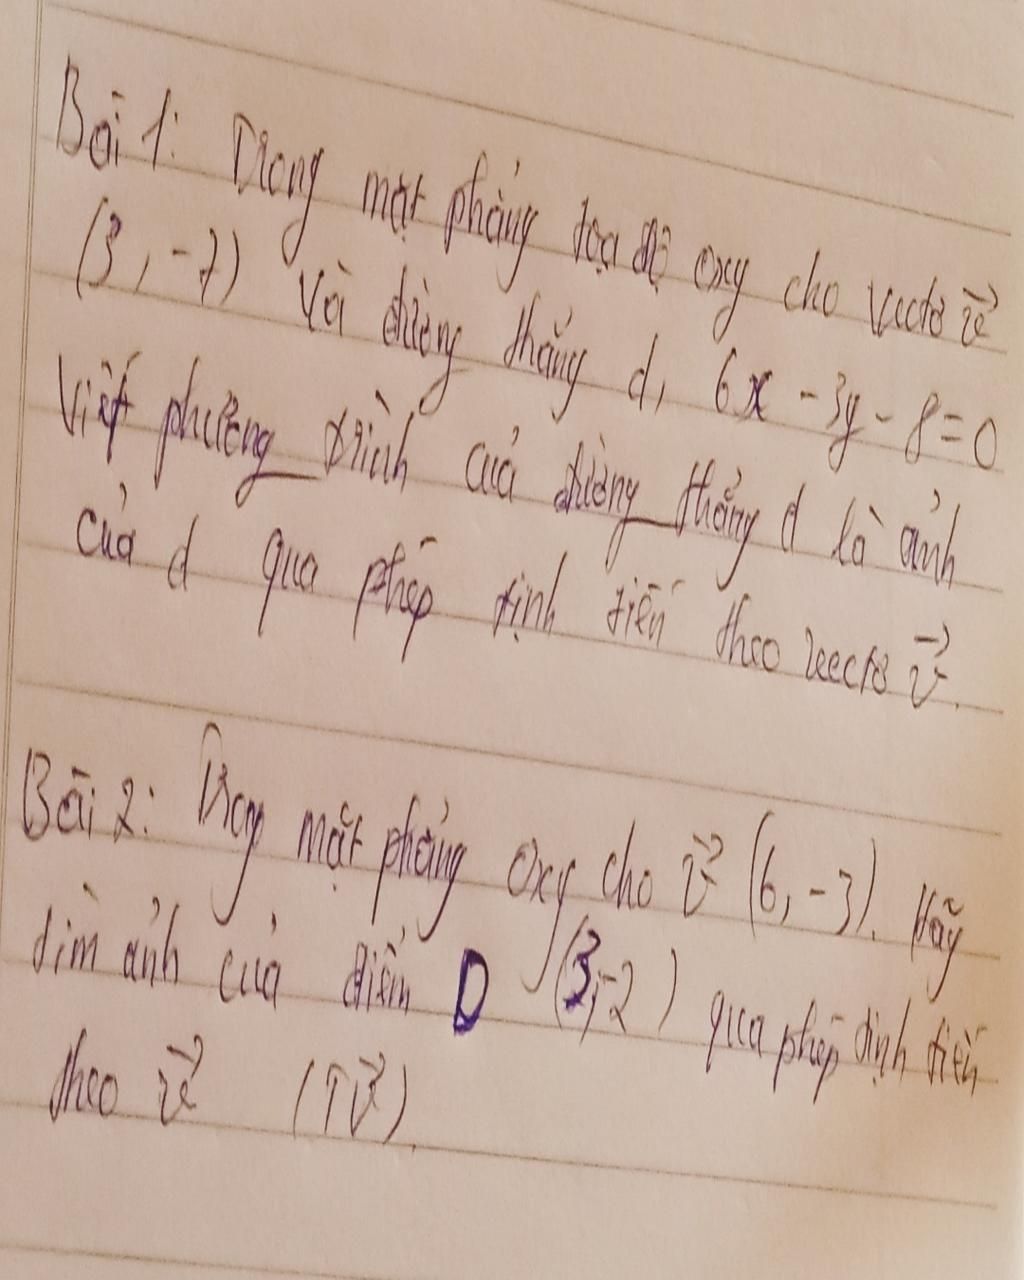 Bài 1: Trong mặt phẳng tọa độ oxy cho vectơ v
(3, -7) và đường thẳng d, 6x - 3y - 8 = 0
Viết phương trình của đường thẳng d là ảnh
của d qua phép tịnh tiến theo vectơ v.
Bài 2: Trong mặt phẳng oxy cho v (6, -3). Hãy
tìm ảnh của điểm D (3,-2) qua phép tịnh tiến
theo v (Tv).